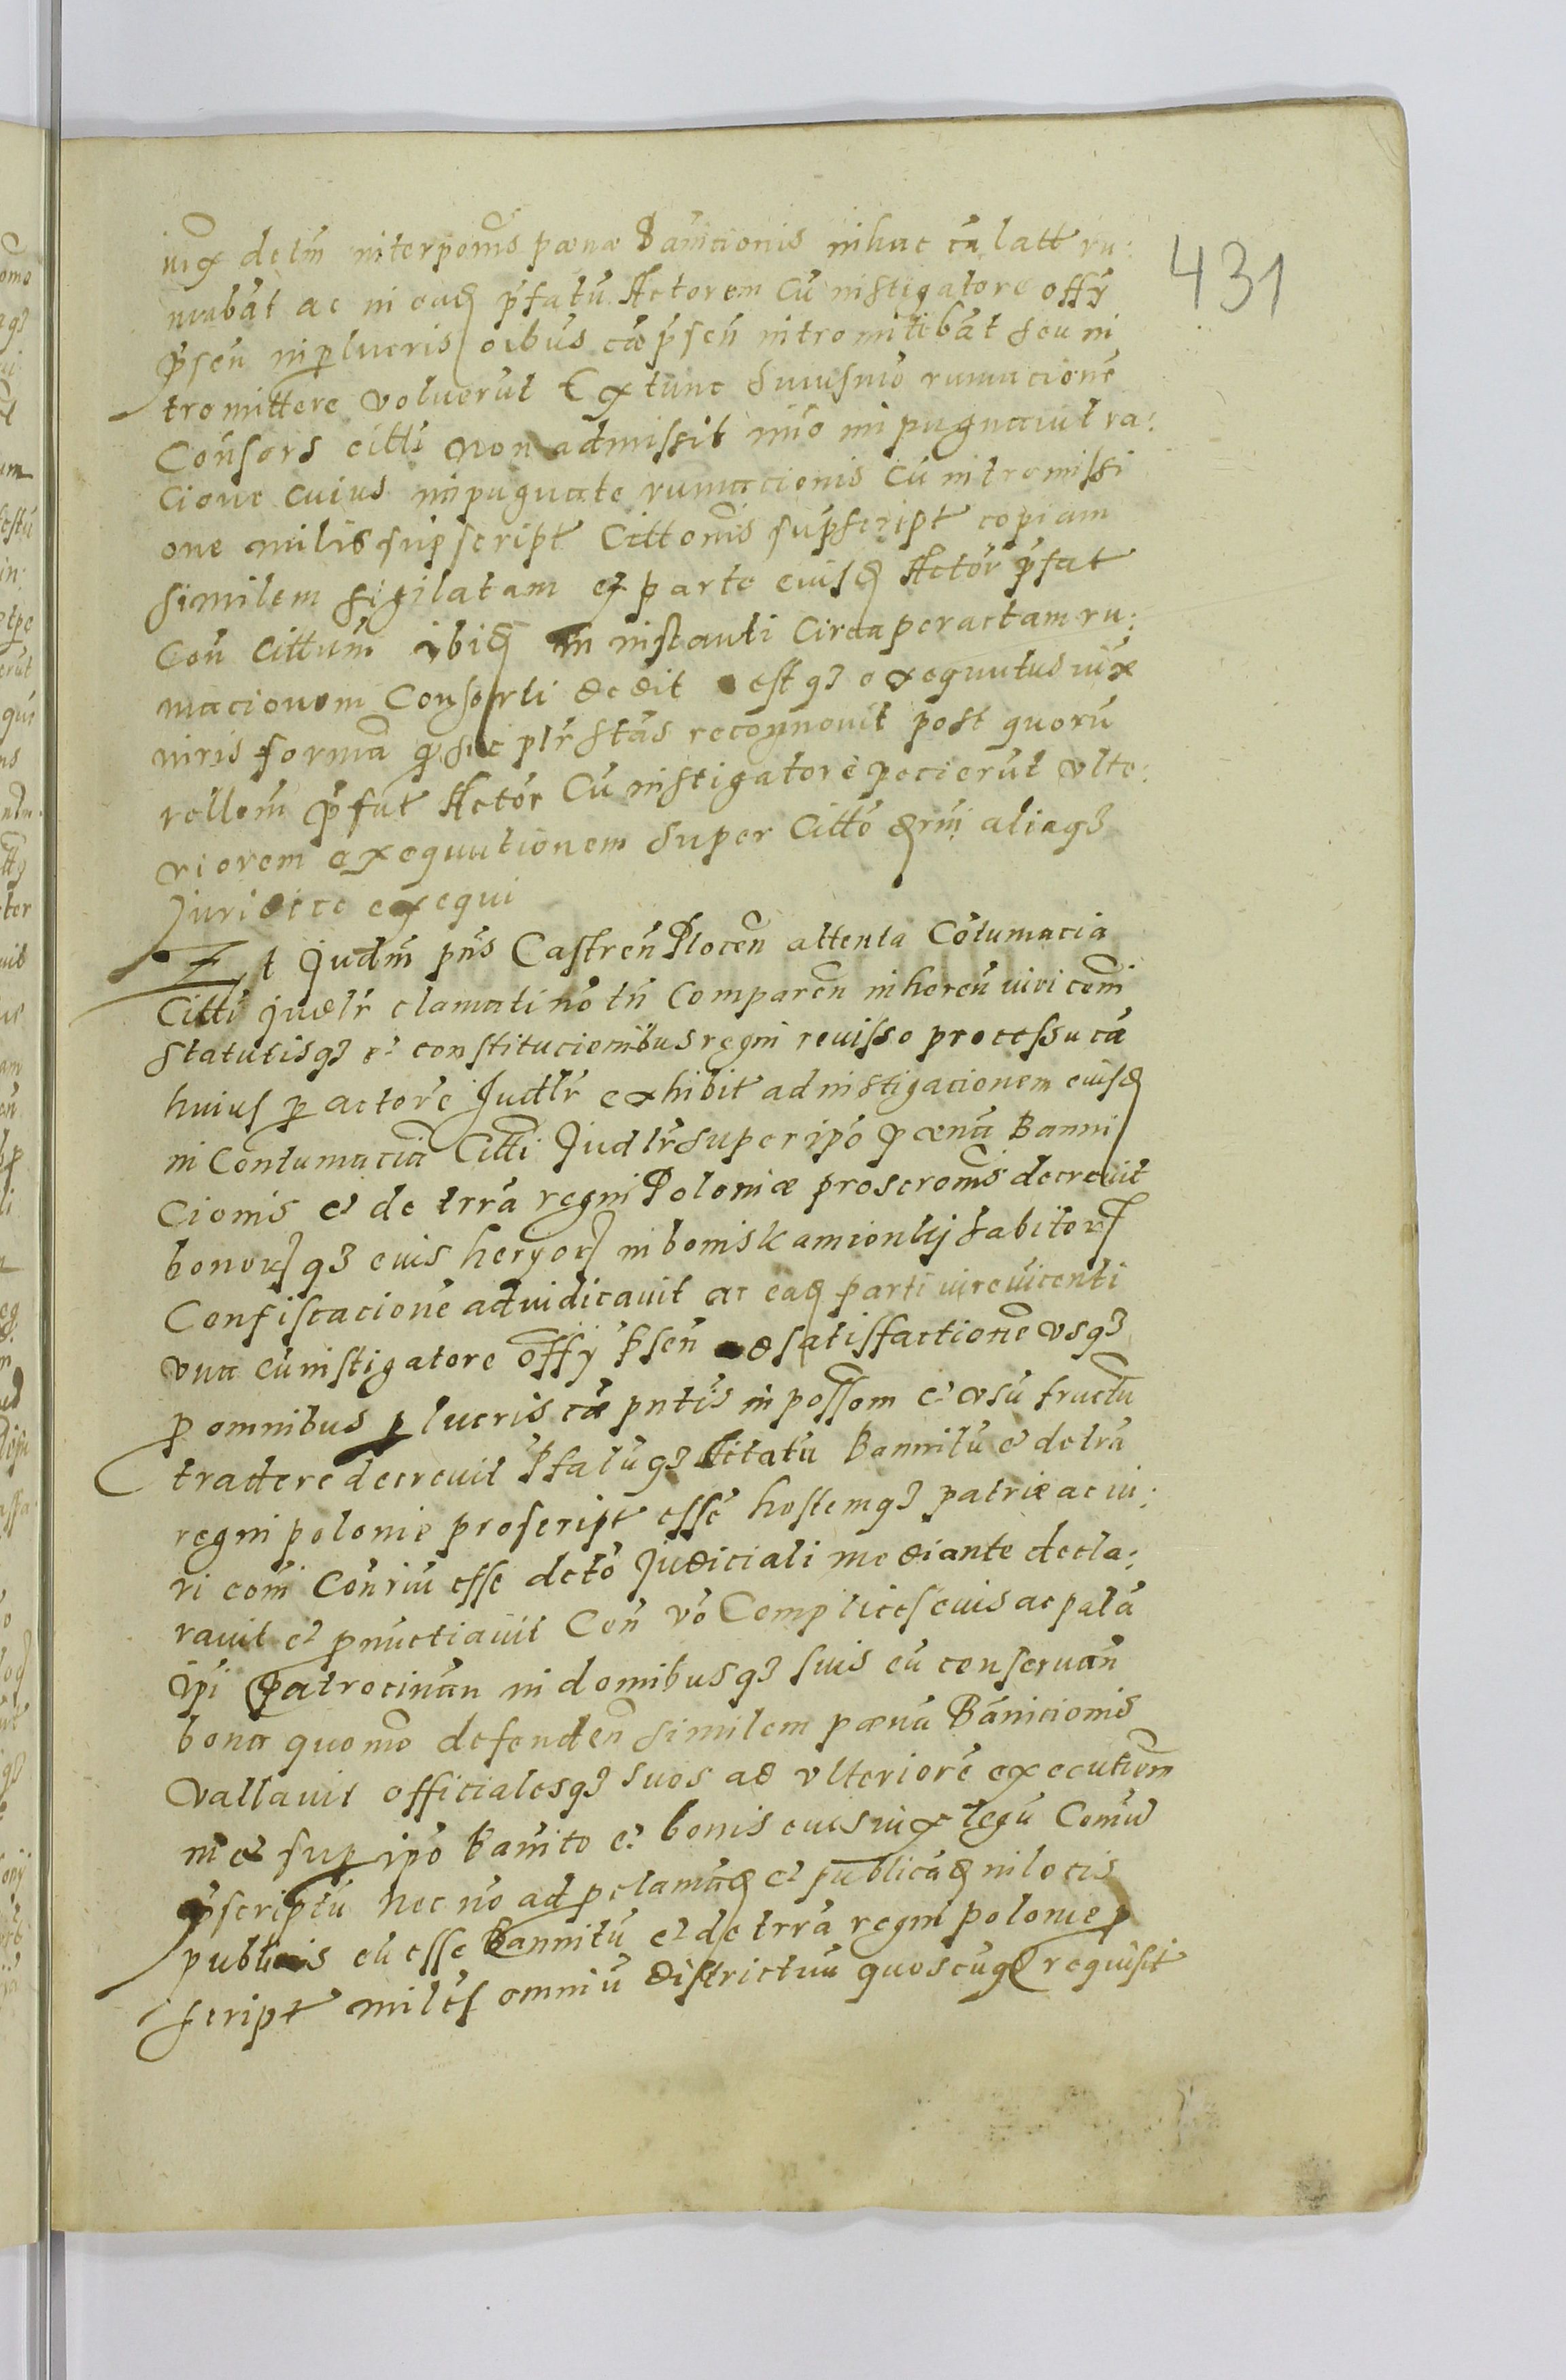 431
iux detm interpoms pænæ Banicionis in hac ca latt ru:
mabat ac in eadę pfatu Actorem Cu instigatore offy
psen in plucris oibus cæ psen intromitebat seu in
tromittere voluerut Ex tunc huiusmo rumacione
Consors citti non admissit imo impugnauit ra:
cione cuius impugnate rumacionis Cu intromissi
one milis supscript Cittonis supscript copiam
similem sigilatam ex parte eiusdę Actor pfat
Con Cittum ibidę in instanti Circa peractam ru:
macionem Consorti dedit estq3 exequutus iux
iuris forma pst sic plr stas recognouit post quoru
rellem pfat Actor Cu instigatore pecierut vlte:
riorem exequutionem super Citto aliaq3
Juridice exequi
Et Judm pns Castren Plocen attenta Cotumacia
Citti judlr clamati no tn Comparen inheren iuri comi
statutisq3 et constitucionibus regni reuisso processu ca
huius p actore Judlr exhibit ad instigacionem eiusdę
in Contumacia Citti Judlr super ipo pæna Banni
Cionis et de trra regni Poloniæ proscroms decreuit
bonorq3 eius heryor in bonis kamionky habitor
Confiscacione adiudicauit ac eadę parti iure uicenti
vna cu instigatore offy psen ad satisfactione vsq3
p omnibus p lucris cæ pntis in possom et vsu fructu
tradere decreuit pfatuq3 Citatu Bannitu et de tra
regni polonie proscript esse hostemq3 patriæ ac iu:
ri com Conriu esse deto Judiciali mediante decla:
rauit et pnuctiauit Con vo Complices eius ac pala
ipi patrocinan in domibusq3 suis eu conseruan
bona quomo defenden similem pæna Banicionis
Vallauit officialesq3 suos ad vlteriore executiom
in et sup ipo Banito et bonis eius iux legu Comu
pscriptu nec no ad pclamadę et publicadę in locis
publicis eu esse Bannitu et de trra regni polonie p
script miles omniu districtuu quoscuq3 requisit